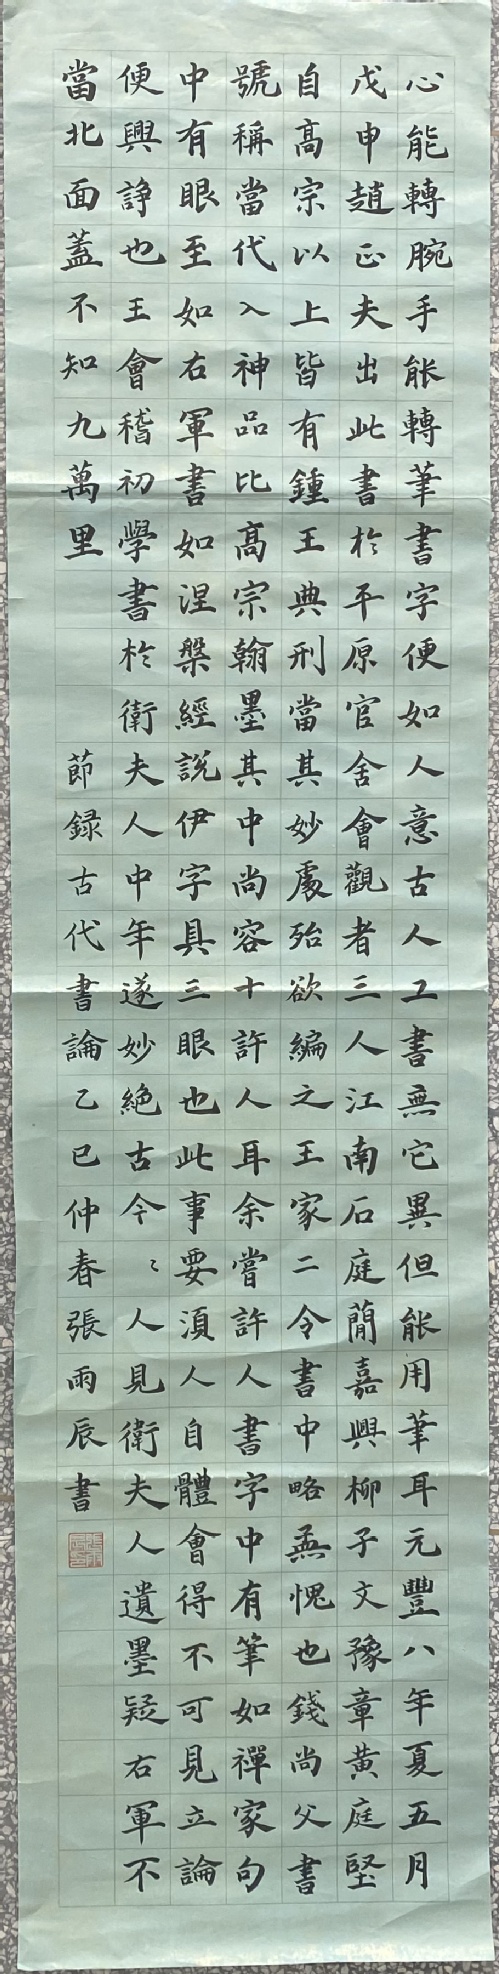 心能轉腕手能轉筆書字便如人意古人工書無它異但能用筆耳元豐八年夏五月
戊申趙正夫出此書於平原官舍會觀者三人江南石庭簡嘉興柳子文豫章黃庭堅
自高宗以上皆有鍾王典刑當其妙處殆欲編之王家二令書中略無愧也錢尚父書
號稱當代入神品比高宗翰墨其中尚容十許人耳余嘗許人書字中有筆如禪家句
中有眼至如右軍書如涅槃經說伊字具三眼也此事要須人自體會得不可見立論
便興諍也王會稽初學書於衛夫人中年遂妙絕古今〻人見衛夫人遺墨疑右軍不
當北面蓋不知九萬里 節録古代書論乙巳仲春張雨辰書